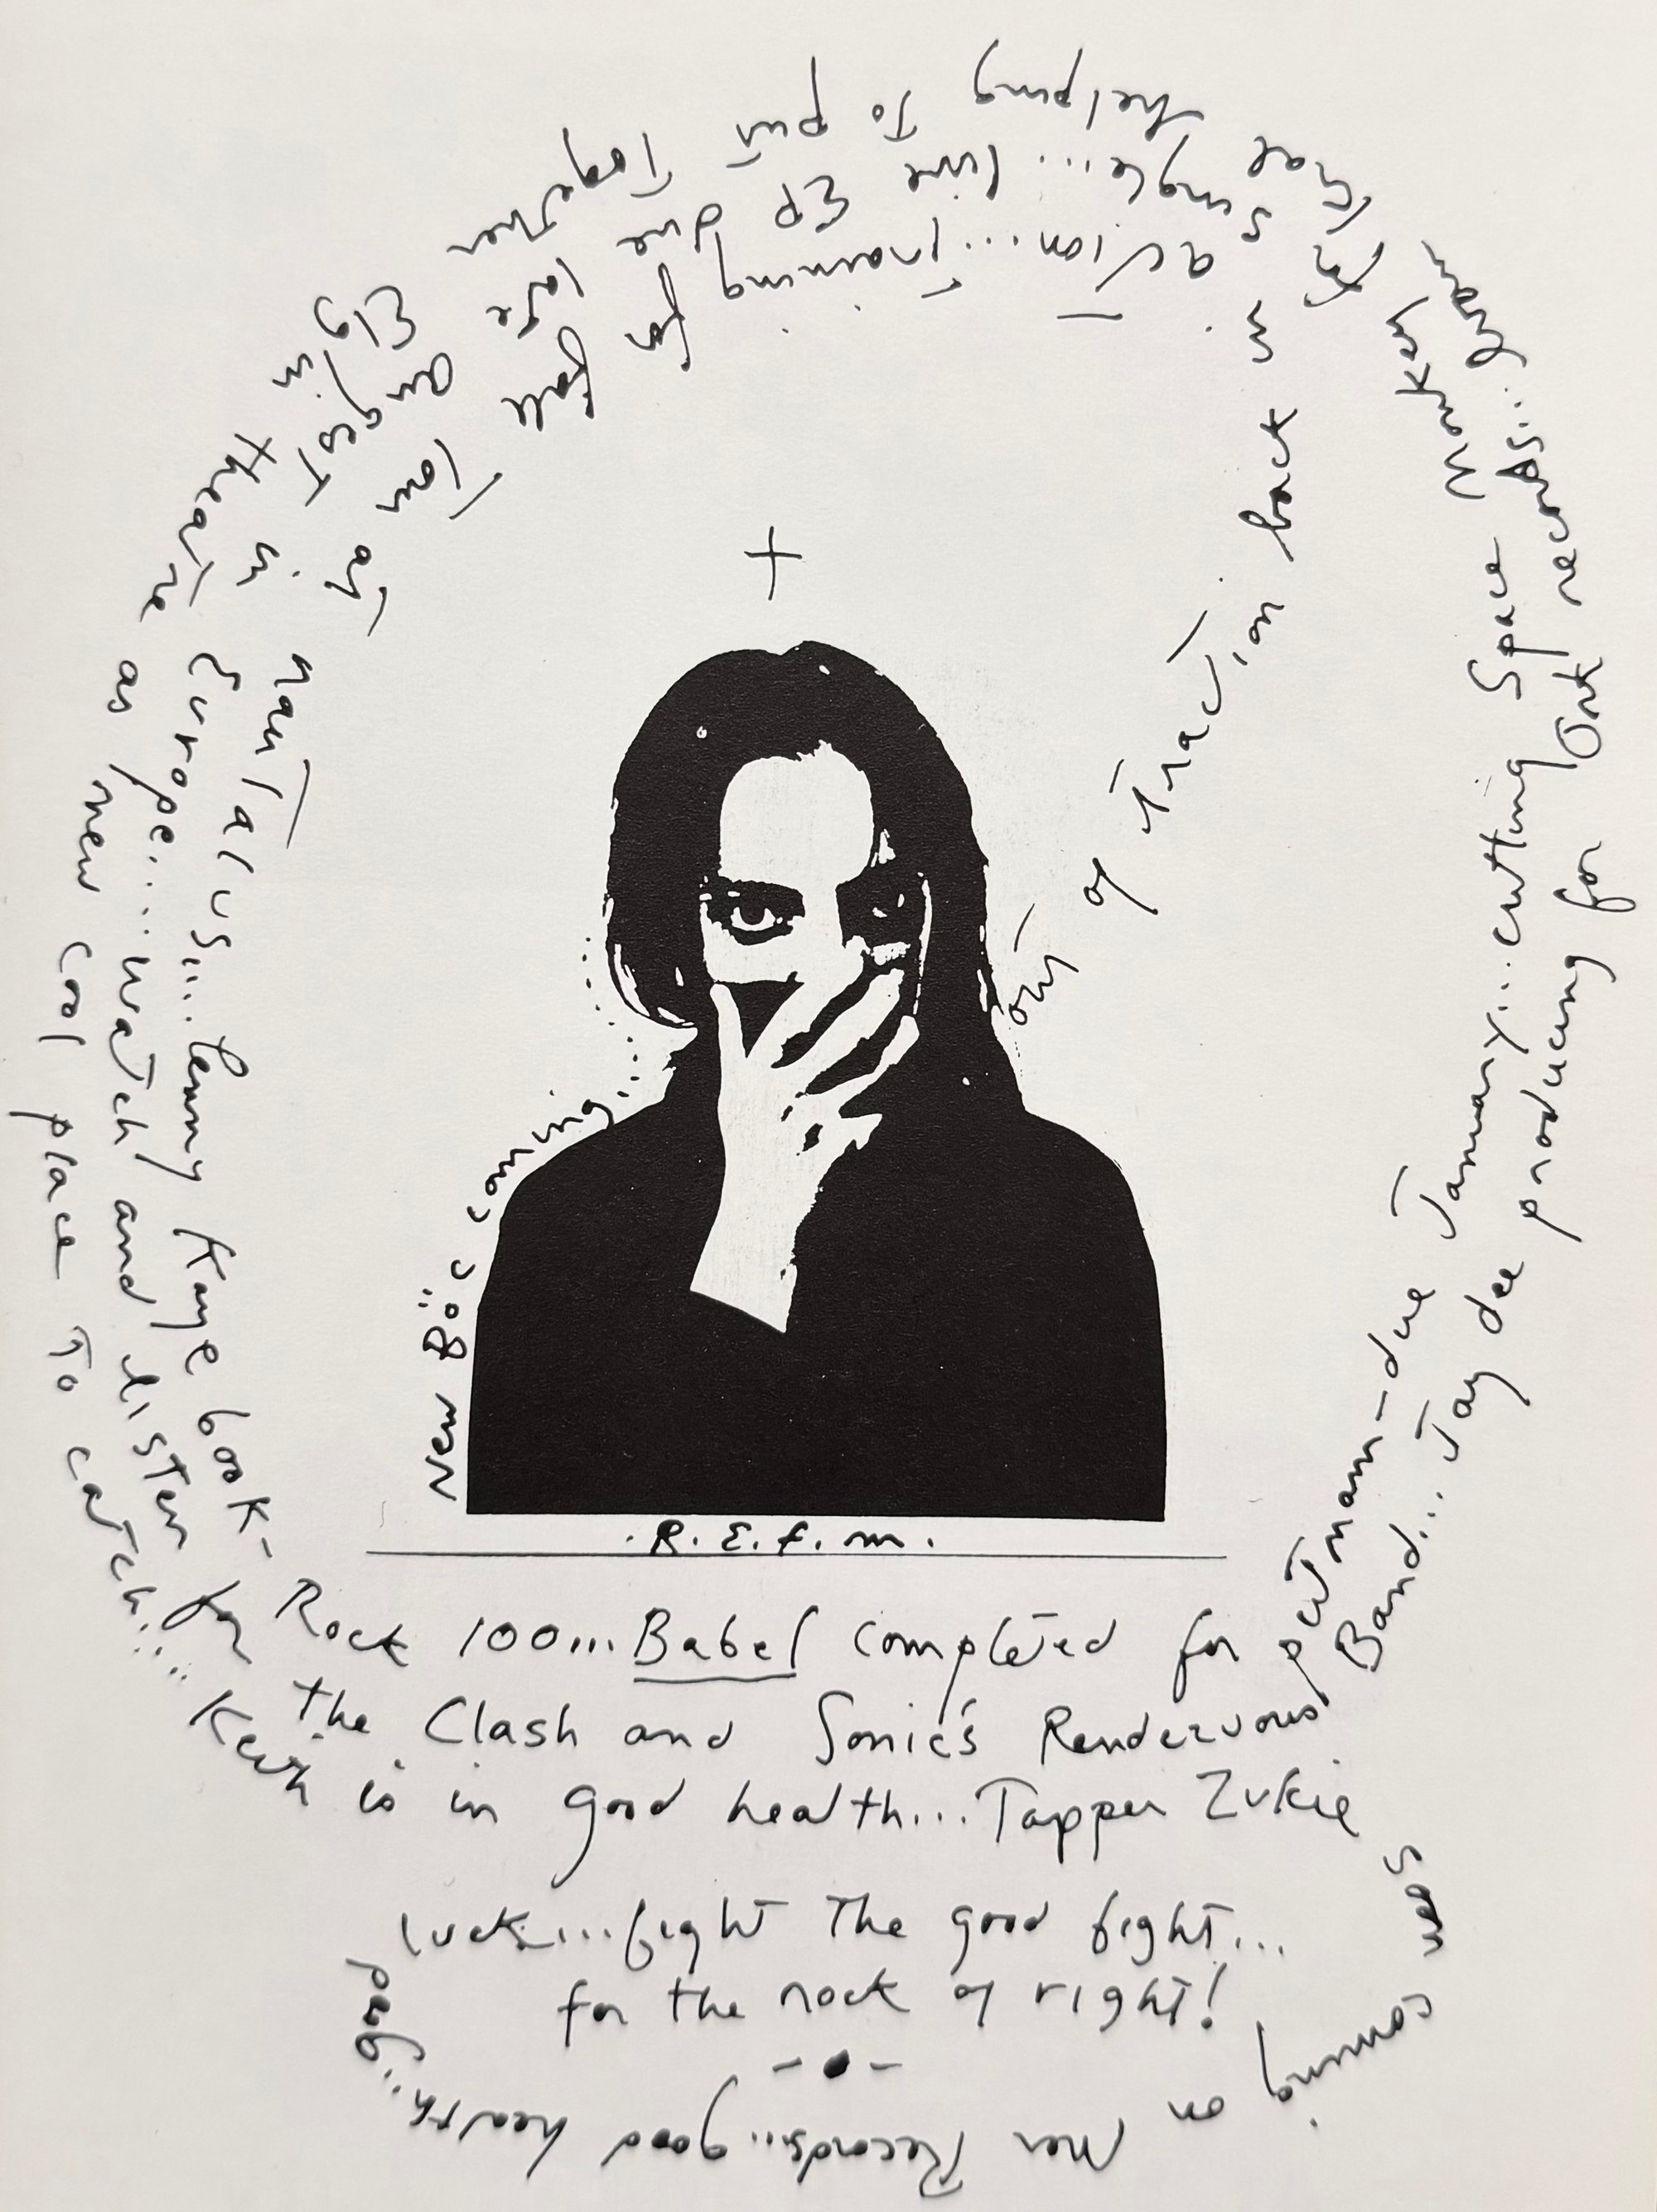 +
New Böc coming.......
out of traction back in
action... Training for fall Tour of nautalus... Lenny Kaye book-
Rock 100... Babel completed for putmann-due January... cutting Space Monkey for
single... live EP due late August in Europe.... watch and listen for
the Clash and Sonic's Rendezvous Band... Jay dee producing for Ork records... Ivan Kral
helping To put Together Elgin theatre as new cool place To catch.....
Keith is in good health... Tapper Zukie
soon coming on Mer Records... good health... good
luck... fight the good fight...
for the rock of right!
- • -
.R.E.f.m.